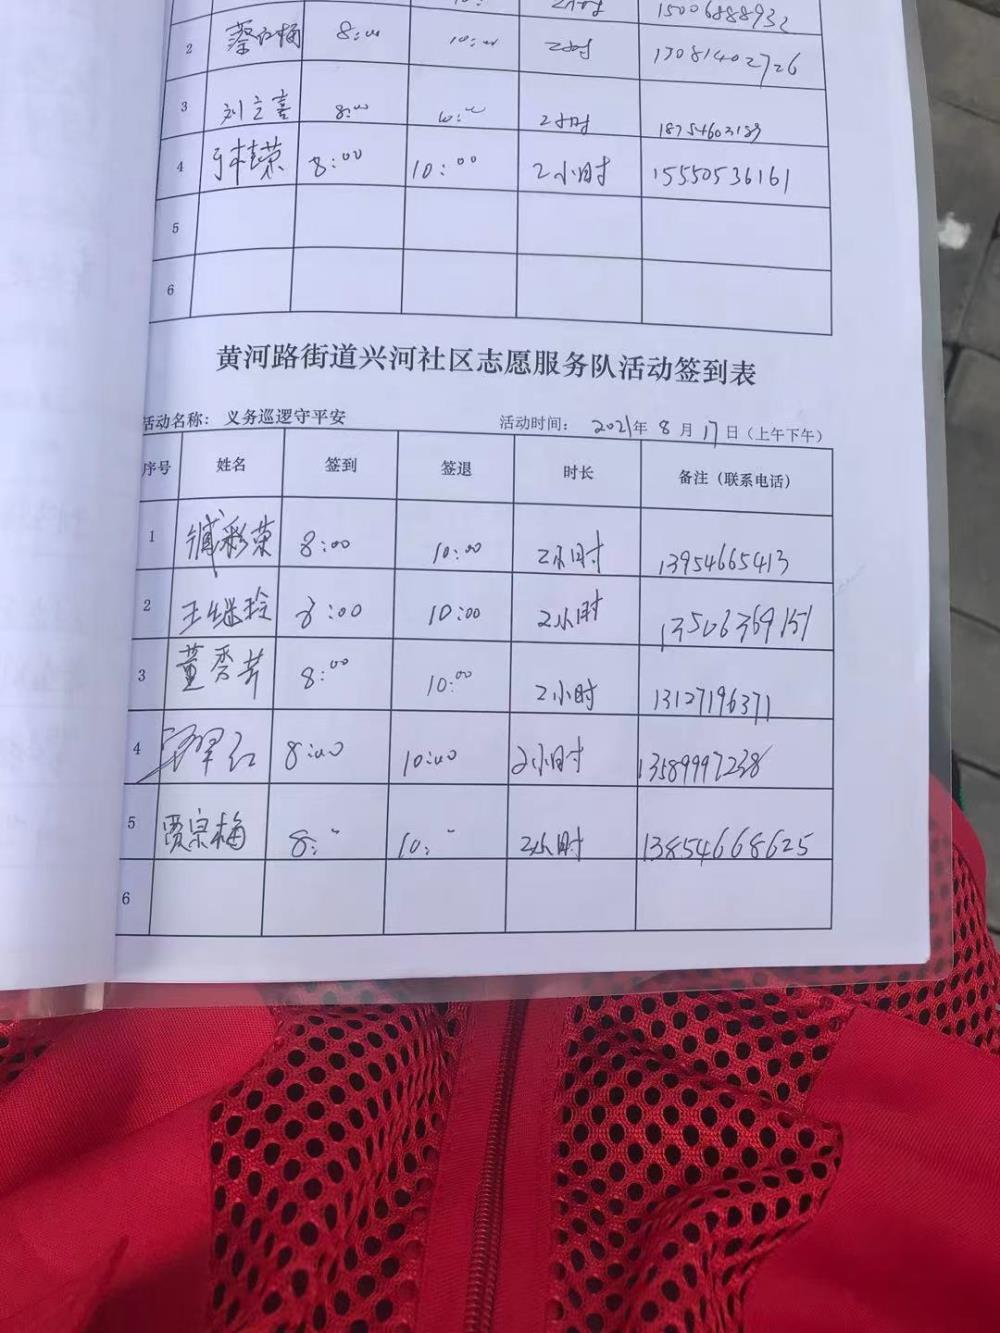 2小时 15006888932
2 蔡红梅 8:00 10:00 2小时 17081402726
3 刘立喜 8:00 10:00 2小时 18754603189
4 于桂荣 8:00 10:00 2小时 15550536161
5
6
黄河路街道兴河社区志愿服务队活动签到表
活动名称：义务巡逻守平安 活动时间： 2021年 8 月 17日（上午下午）
序号 姓名 签到 签退 时长 备注（联系电话）
1 彩荣 8:00 10:00 2小时 13954665413
2 王继玲 8:00 10:00 2小时 13506369151
3 董秀芳 8:00 10:00 2小时 13127196371
4 翠红 8:00 10:00 2小时 13589997238
5 贾宗梅 8: 〃 10: 〃 2小时 13854668625
6